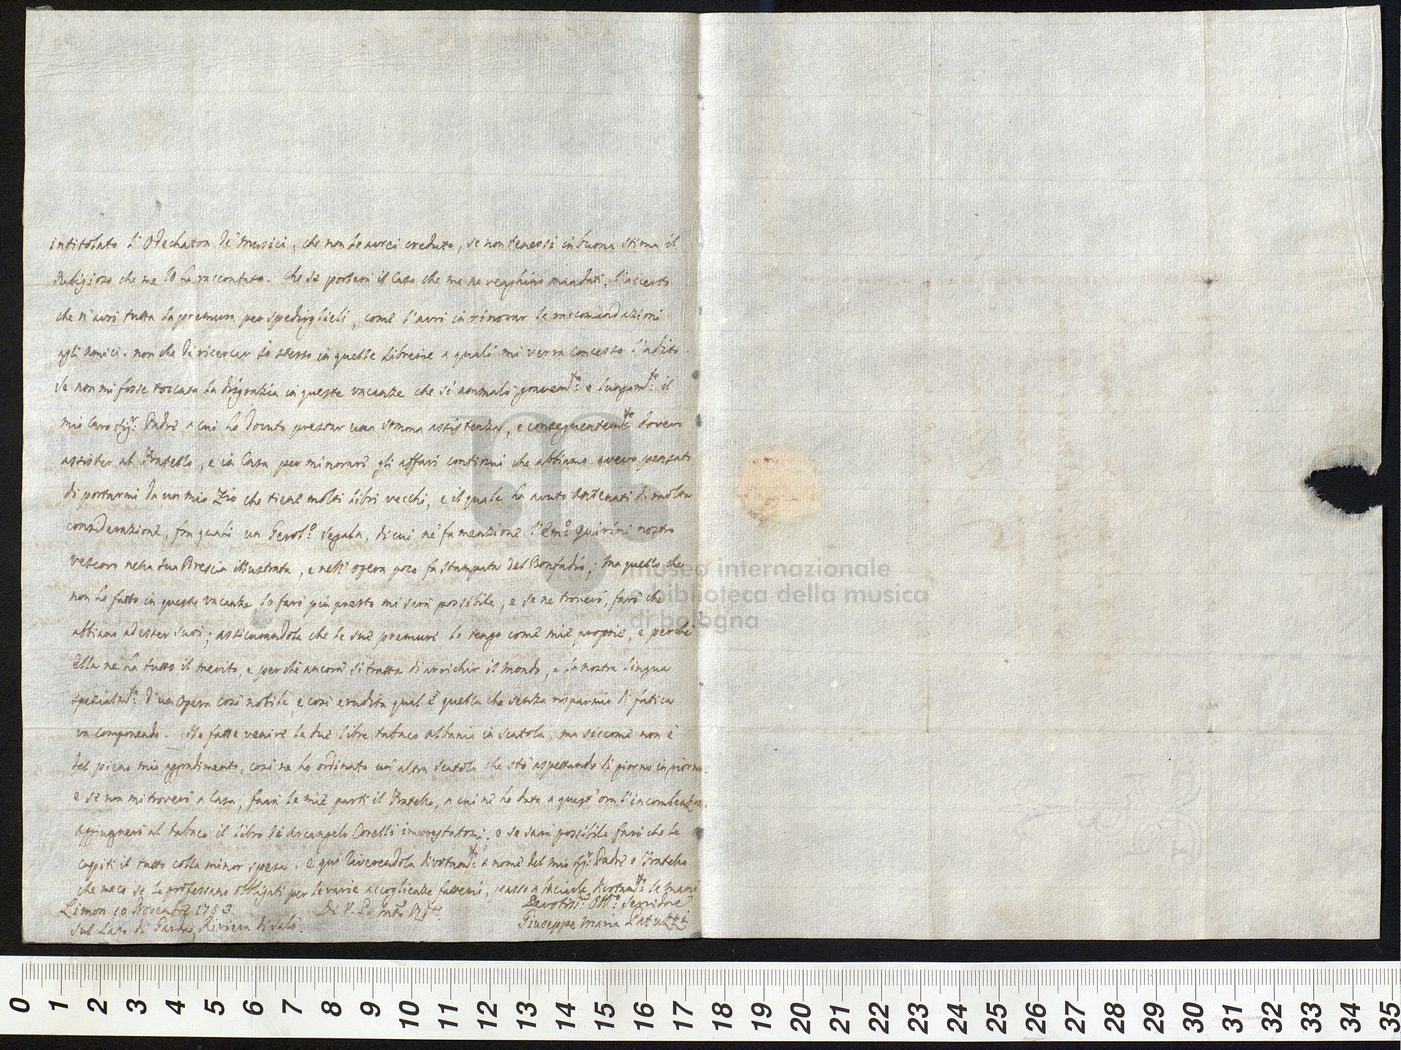 intitolato l'Odechaton de' Musici, che non le avrei creduto, se non tenessi in buona stima il
Religioso che me lo ha raccontato. che se porterà il Caso che me ne venghino mandati, l'accerto
che n'avrò tutta la premura per spedirglieli, come l'avrò in rinovar le raccomandazioni
agli amici. non che di ricercar Io stesso in quelle librerie a quali mi verrà concesso l'adito.
Se non mi fosse toccata la disgrazia in queste vacanze che si ammalò gravem.te e lungam.te il
mio Caro Sig.r Padre a cui ho dovuto prestar una somma assistenza, e conseguentem.te dover
assister al Fratello, e in Casa per minorare gli affari continui che abbiamo avevo pensato
di portarmi da un mio Zio che tiene molti libri vecchi, e il quale ha avuto Antenati di molta
considerazione, fra quali un Gerol.o Segala, di cui ne fa menzione l'Em.o Quirini nostro
vescovo nella sua Brescia illustrata, e nell'opera poco fa stampata del Bonfadio; ma quello che
non ho fatto in queste vacanze lo farò più presto mi sarà possibile, e se ne troverò, farò che
abbiano ad esser suoi; assicurandola che le sue premure le tengo come mie proprie, e perchè
ella ne ha tutto il merito, e perchè ancora si tratta di arrichir il mondo, e la nostra lingua
spezialm.te d'un opera così nobile, e così erudita qual è quella che senza risparmio di fatica
va componendo. Ho fatte venire la due libre tabaco Albania in scatola, ma siccome non è
del pieno mio aggradimento, così ne ho ordinato un'altra scatola che stò aspettando di giorno in giorno.
e se non mi troverò a Casa, farà le mie parti il Fratello, a cui ne ho data a quest'ora l'incombenza.
aggiugnerò al tabaco il libro di Arcangelo Corelli imprestatomi; e se sarà possibile farò che le
capiti il tutto colla minor spesa. e qui riverendola divotam.te a nome del mio Sig.r Padre e Fratello
che meco se le professano obbligati per le varie accoglienze fattemi, passo a baciarle divotam.te le mani
Limon 10 Novembre 1753. Di V. P.
Sul Lago di Garda, Riviera di Salò.
Devotiss.o Obb.o Servidore
Giuseppe Maria Patuzzi
museo internazionale
e biblioteca della musica
di bologna
0 1 2 3 4 5 6 7 8 9 10 11 12 13 14 15 16 17 18 19 20 21 22 23 24 25 26 27 28 29 30 31 32 33 34 35